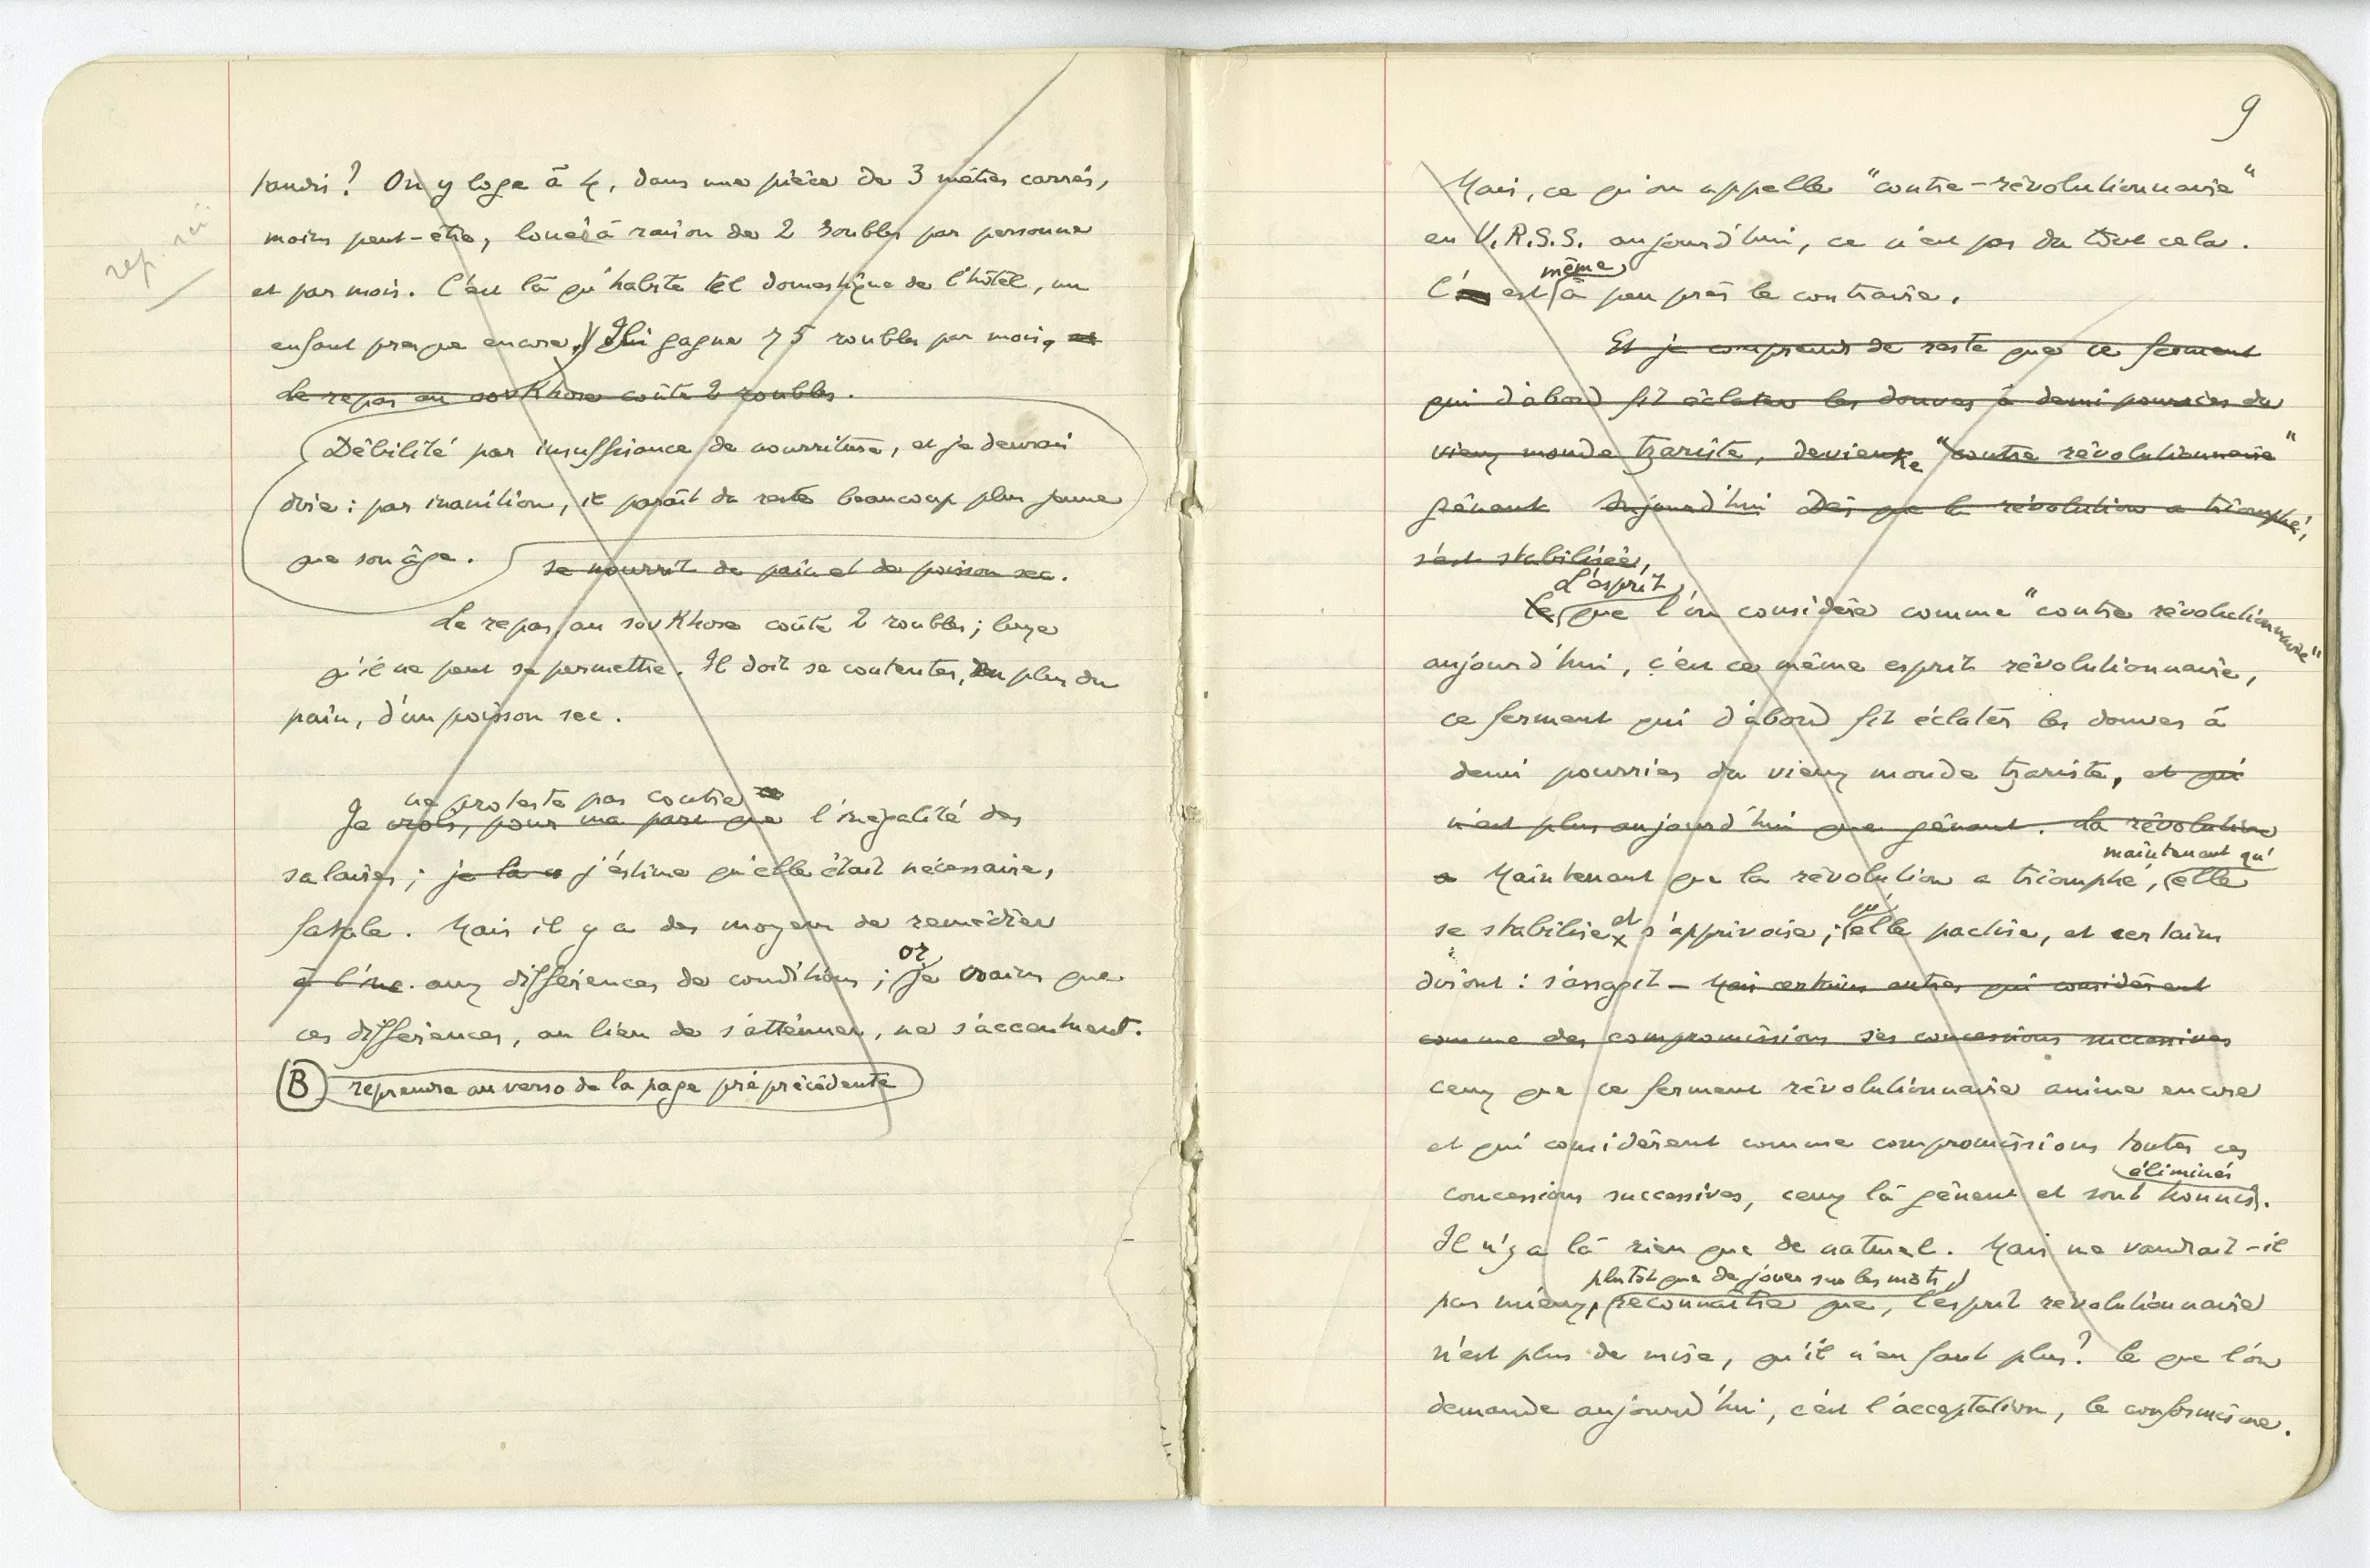 rep. ici
taudis ? On y loge à 4, dans une pièce de 3 mètres carrés,
moins peut-être, louée à raison de 2 roubles par personne
et par mois. C'est là qu'habite tel domestique de l'hôtel, un
enfant presque encore. Il gagne 75 roubles par mois, et
Le repas au sovkhose coûte 2 roubles.
Débilité par insuffisance de nourriture, et je devrais
dire : par inanition, il paraît du reste beaucoup plus jeune
que son âge. se nourrit de pain et de poisson sec.
Le repas, au sovkhose coûte 2 roubles ; luxe
qu'il ne peut se permettre. Il doit se contenter, en plus du
pain, d'un poisson sec.
ne proteste pas contre
Je crois, pour ma part que l'inégalité des
salaires ; je la j'estime qu'elle était nécessaire,
fatale. Mais il y a des moyens de remédier
or
à l'iné. aux différences de conditions ; je crains que
ces différences, au lieu de s'atténuer, ne s'accentuent.
B reprendre au verso de la page pré précédente
9
Mais, ce qu'on appelle "contre-révolutionnaire"
en U.R.S.S. aujourd'hui, ce n'est pas du tout cela.
même
C'est à peu près le contraire.
Et je comprends de reste que ce ferment
qui d'abord fit éclater les douves à demi pourries du
vieux monde tzariste, devienne "contre révolutionnaire"
gênant aujourd'hui Dès que la révolution a triomphé,
s'est stabilisée,
L'esprit
Ce que l'on considère comme "contre révolutionnaire"
aujourd'hui, c'est ce même esprit révolutionnaire,
ce ferment qui d'abord fit éclater les douves à
demi pourries du vieux monde tzariste, et qui
n'est plus aujourd'hui que gênant. La révolution
maintenant qu'
a Maintenant que la révolution a triomphé, elle
et
se stabilise s'apprivoise ; elle pactise, et certains
diront : s'assagit – Mais certains autres qui considèrent
comme des compromissions ses concessions successives
ceux que ce ferment révolutionnaire anime encore
et qui considèrent comme compromissions toutes ces
éliminés
concessions successives, ceux là gênent et sont honnis.
Il n'y a là rien que de naturel. Mais ne vaudrait-il
plutôt que de jouer sur les mots,
pas mieux, reconnaître que, l'esprit révolutionnaire
n'est plus de mise, qu'il n'en faut plus ? Ce que l'on
demande aujourd'hui, c'est l'acceptation, le conformisme.